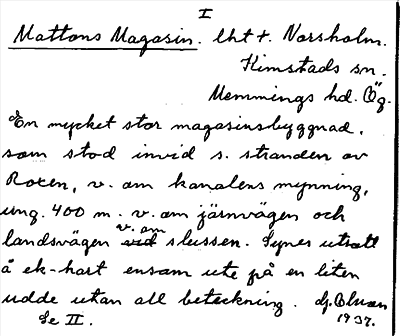 I
Mattons Magasin. lht t. Norsholm.
Kimstads sn.
Memmings hd. Ög.
En mycket stor magasinsbyggnad,
som stod invid s. stranden av
Roxen, v. om kanalens mynning,
ung. 400 m. v. om järnvägen och
v. om
landsvägen vid slussen. Synes utsatt
å ek-kart ensam ute på en liten
udde utan all beteckning.
Se II. 1937.